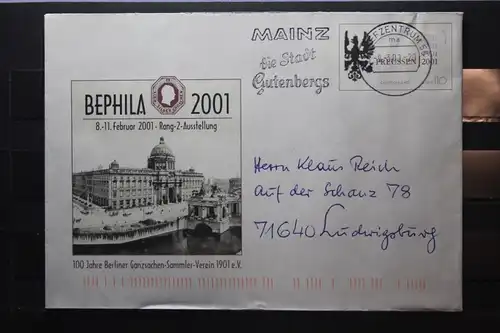 MAINZ
die Stadt
Gutenbergs
PREUSSEN 2001
110
BEPHILA 2001
8.-11. Februar 2001 - Rang-2-Ausstellung
100 Jahre Berliner Ganzsachen-Sammler-Verein 1901 e.V.
Herrn Klaus Reich
Auf der Schanz 78
71640 Ludwigsburg